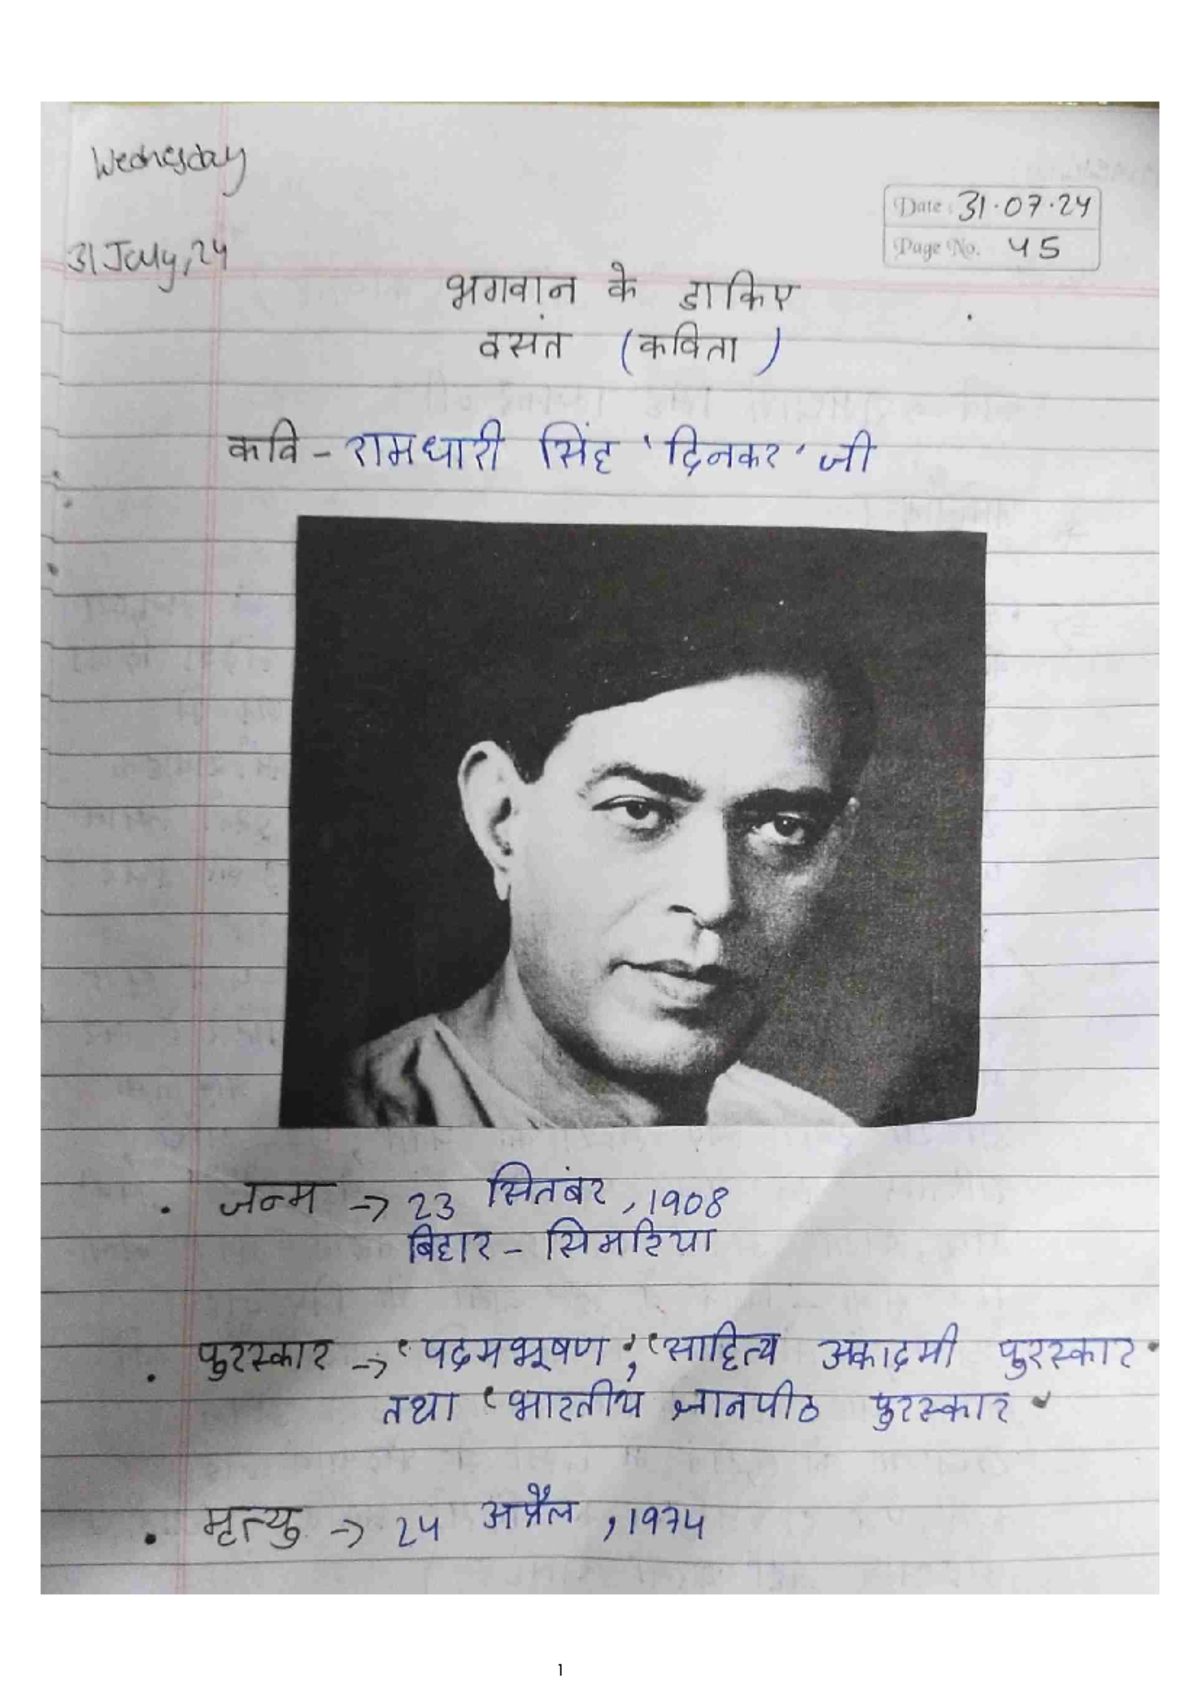 Wednesday
Date : 31.07.24
31 July, 24
Page No. 45
भगवान के डाकिए
वसंत (कविता)
कवि - रामधारी सिंह 'दिनकर' जी
. जन्म -> 23 सितंबर, 1908
बिहार - सिमरिया
. पुरस्कार -> 'पद्मभूषण', 'साहित्य अकादमी पुरस्कार'
तथा 'भारतीय ज्ञानपीठ पुरस्कार'
. मृत्यु -> 24 अप्रैल, 1974
1